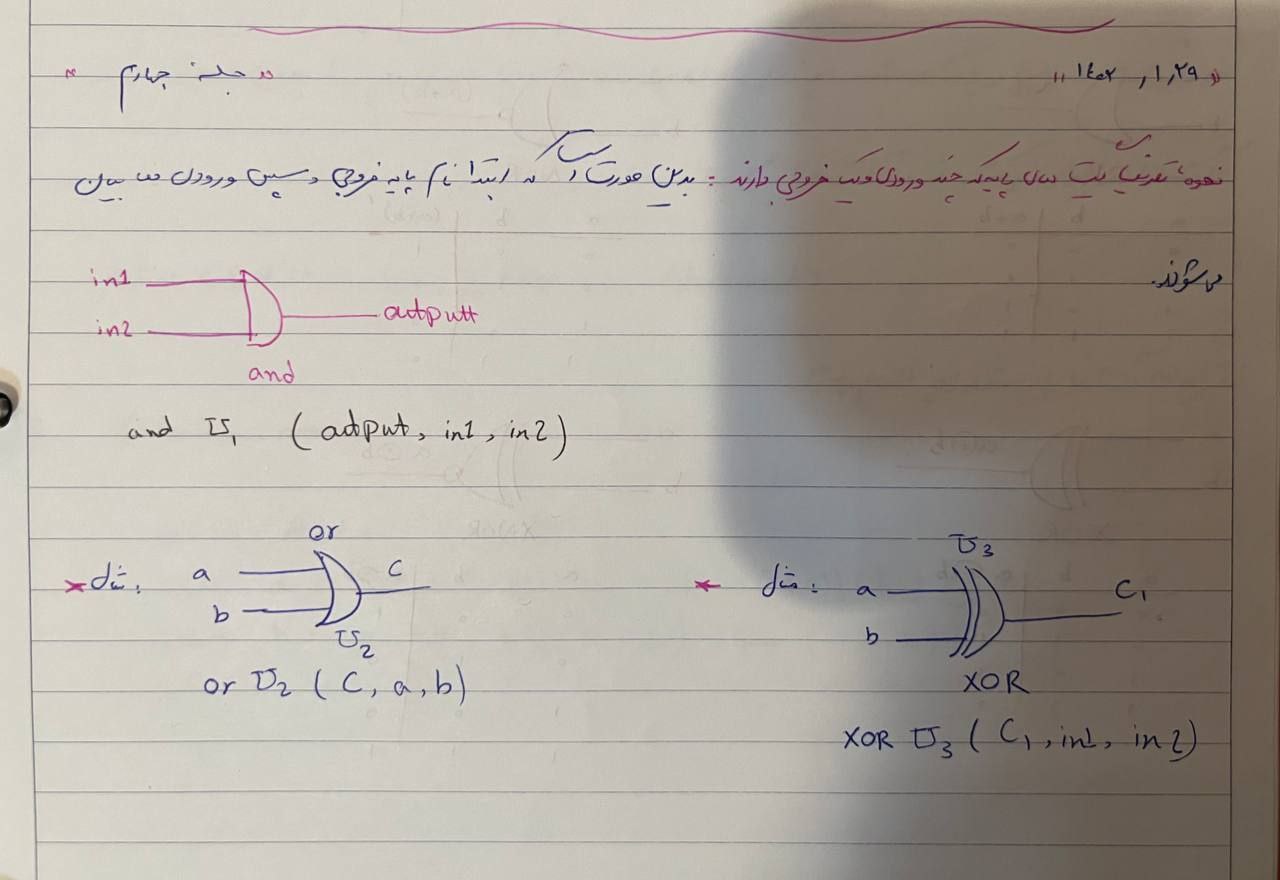 « ۱۴۰۲, ۱,۲۹ »
« جلسه چهارم »
نحوه تعریف گیت های پایه که چند ورودی و یک خروجی دارند : بدین صورت است که ابتدا نام پایه خروجی و سپس ورودی ها بیان
می شوند.
in1
in2
and
and U1 (output, in1, in2)
or
* مثال: a b C
U2
or U2 (C, a, b)
U3
* مثال: a b C1
XOR
XOR U3 (C1, in1, in2)